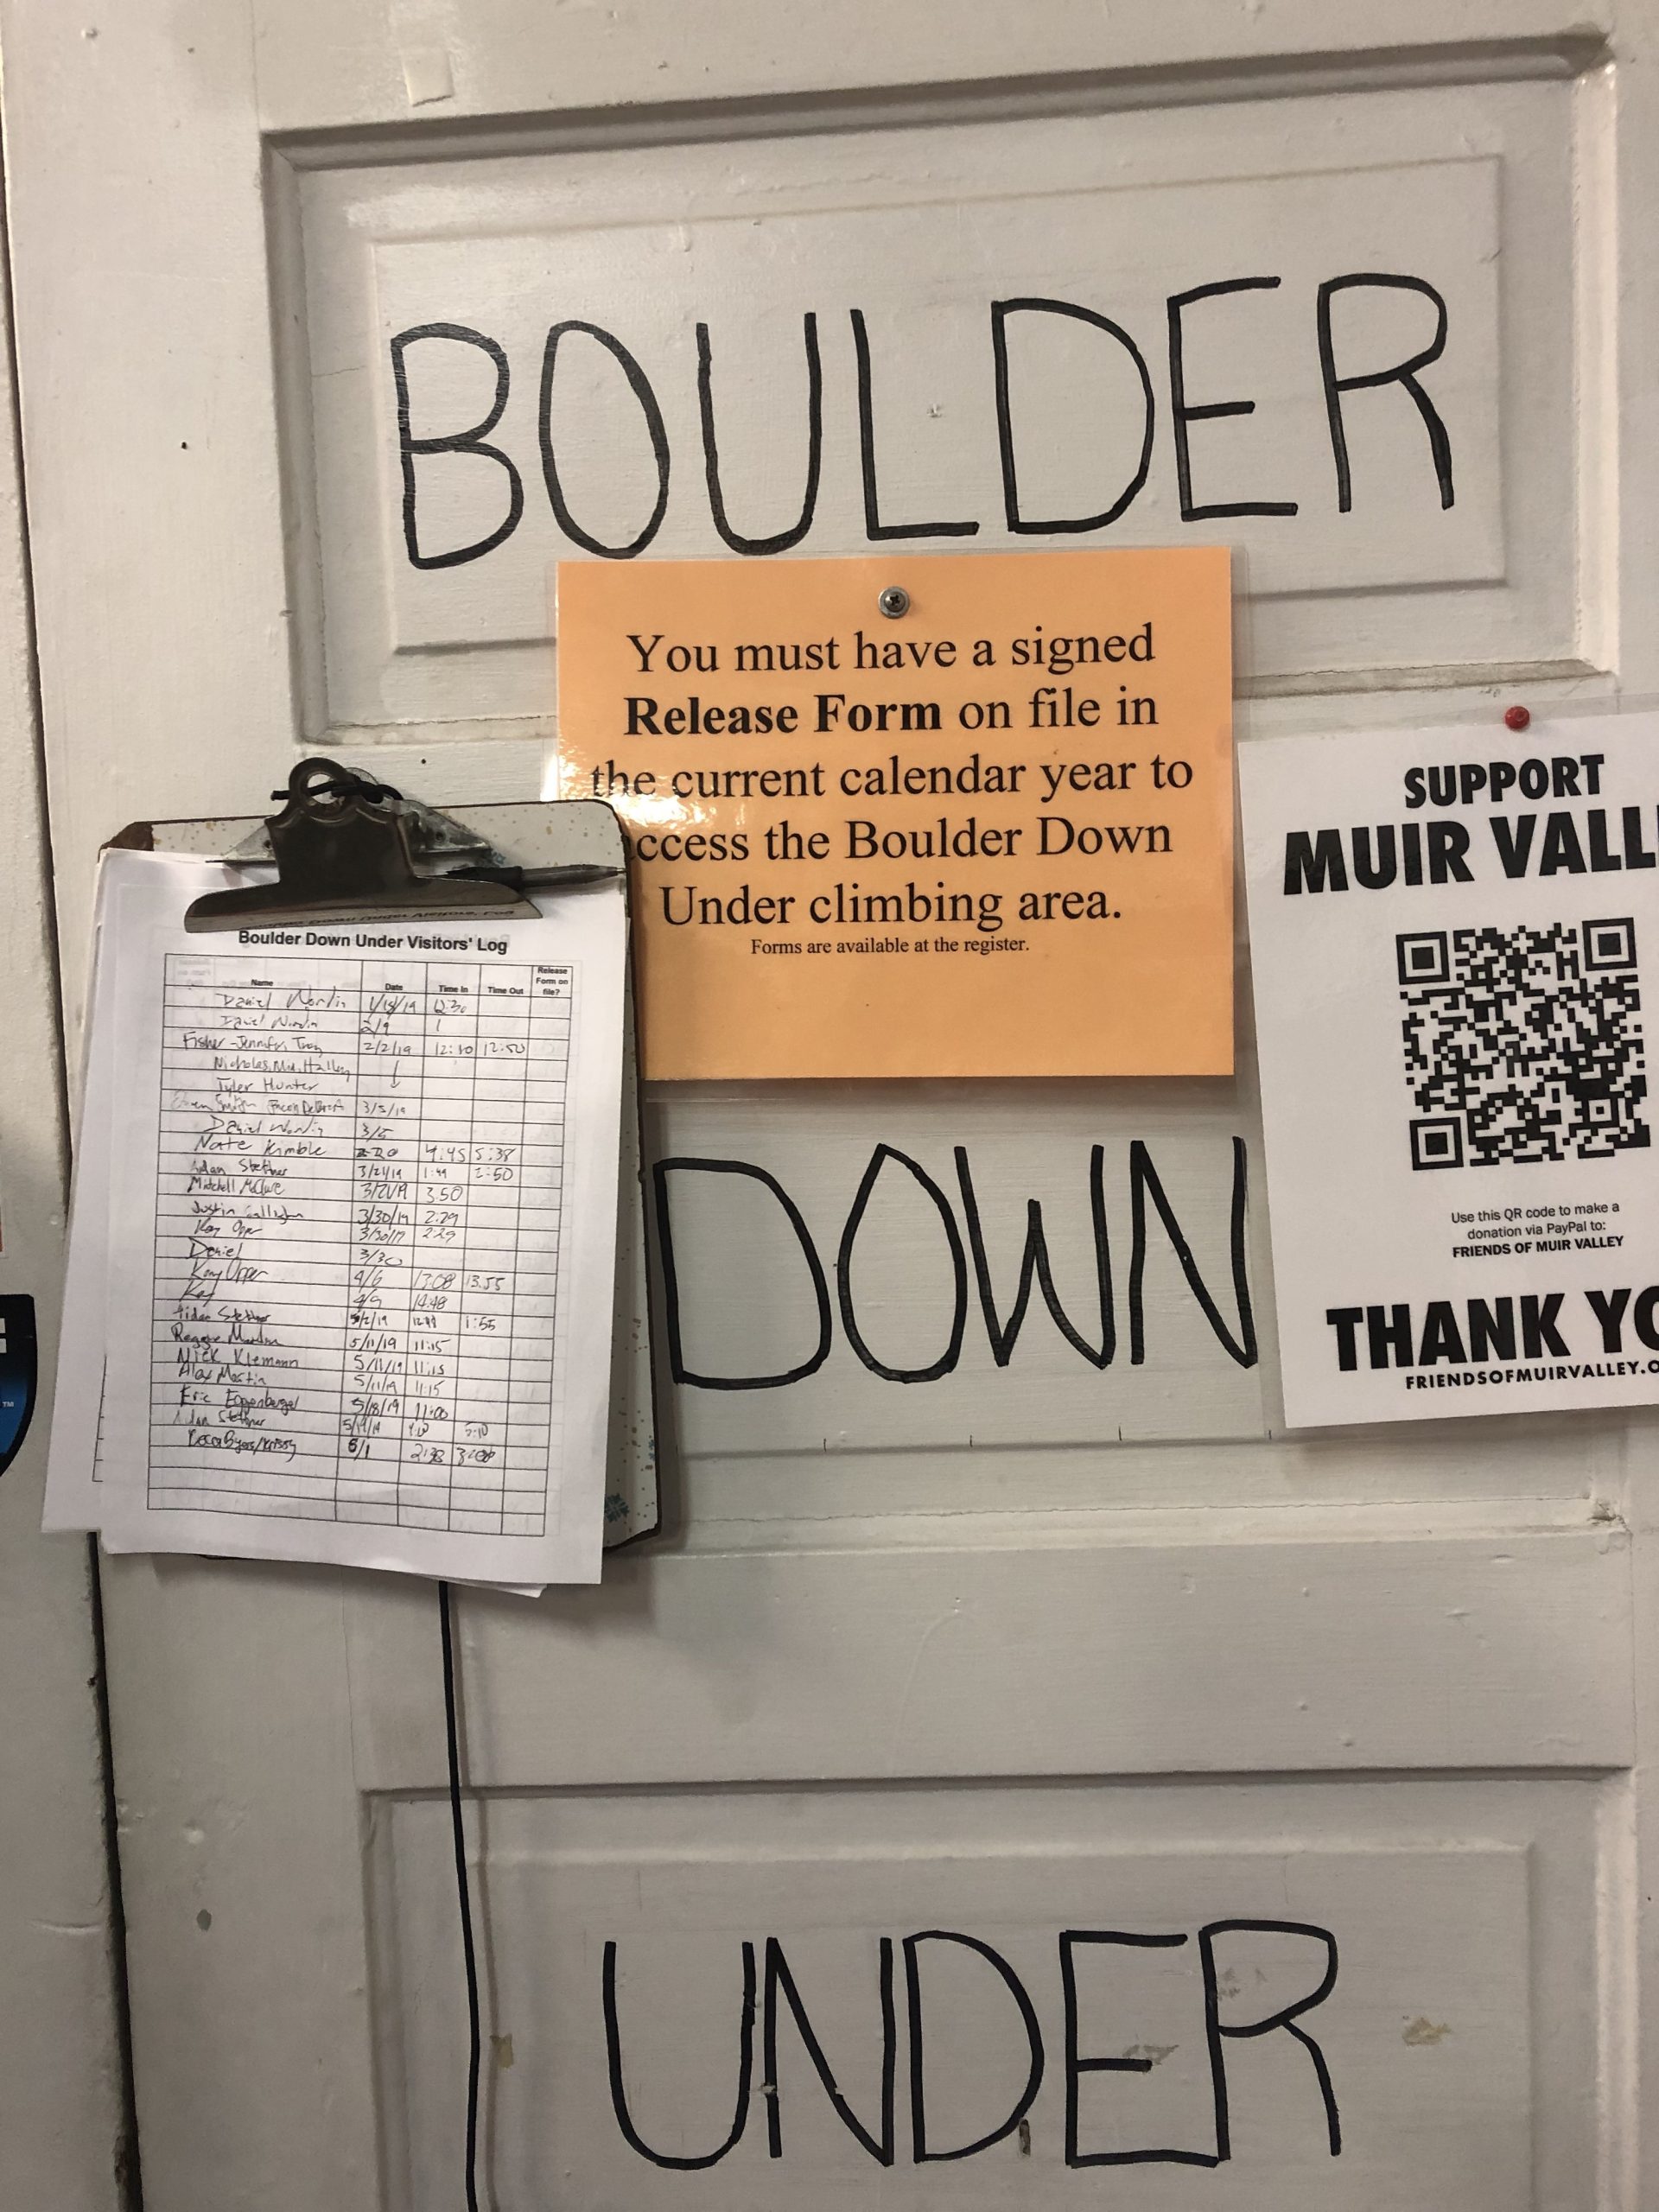 BOULDER
You must have a signed
Release Form on file in
the current calendar year to
ccess the Boulder Down
Under climbing area.
Forms are available at the register.
SUPPORT
MUIR VALL
Use this QR code to make a
donation via PayPal to:
FRIENDS OF MUIR VALLEY
THANK YO
FRIENDSOFMUIRVALLEY.O
Boulder Down Under Visitors' Log
Name Date Time In Time Out Release Form on file?
Daniel 1/15/19 12:30
Daniel 2/9 1
Fisher - Jennifer, Troy 2/2/19 12:10 12:50
Nicholas, Mia, Hailey
Tyler Hunter
3/5/19
Daniel 3/5
Nate Kimble 4:45 5:38
Aidan Stethner 3/21/19 1:44 2:50
Mitchell McClure 3/21/19 3:50
Justin 3/30/19 2:29
Kay Opper 3/30/19 2:29
Daniel 3/30
Kay Opper 4/6 13:08 13:55
Kay 4/9 14:48
Aidan Stethner 5/2/19 1:55
5/11/19 11:15
Nick Klemann 5/11/19 11:15
Alex Martin 5/11/19 11:15
Eric Eggenberger 5/18/19 11:00
Stethner 5/19/19
6/1 2:38 3:08
DOWN
UNDER
TM